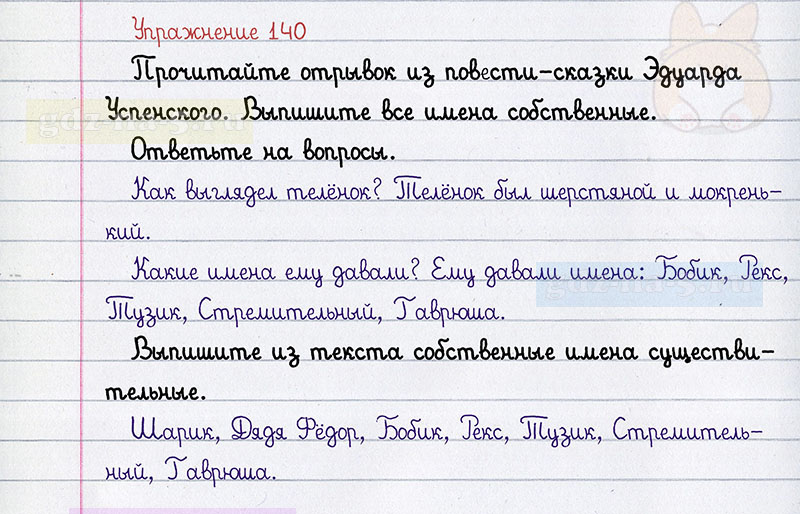 Упражнение 140
Прочитайте отрывок из повести-сказки Эдуарда
Успенского. Выпишите все имена собственные.
Ответьте на вопросы.
Как выглядел телёнок? Телёнок был шерстяной и мокрень-
кий.
Какие имена ему давали? Ему давали имена: Бобик, Рекс,
Тузик, Стремительный, Гаврюша.
Выпишите из текста собственные имена существи-
тельные.
Шарик, Дядя Фёдор, Бобик, Рекс, Тузик, Стремитель-
ный, Гаврюша.